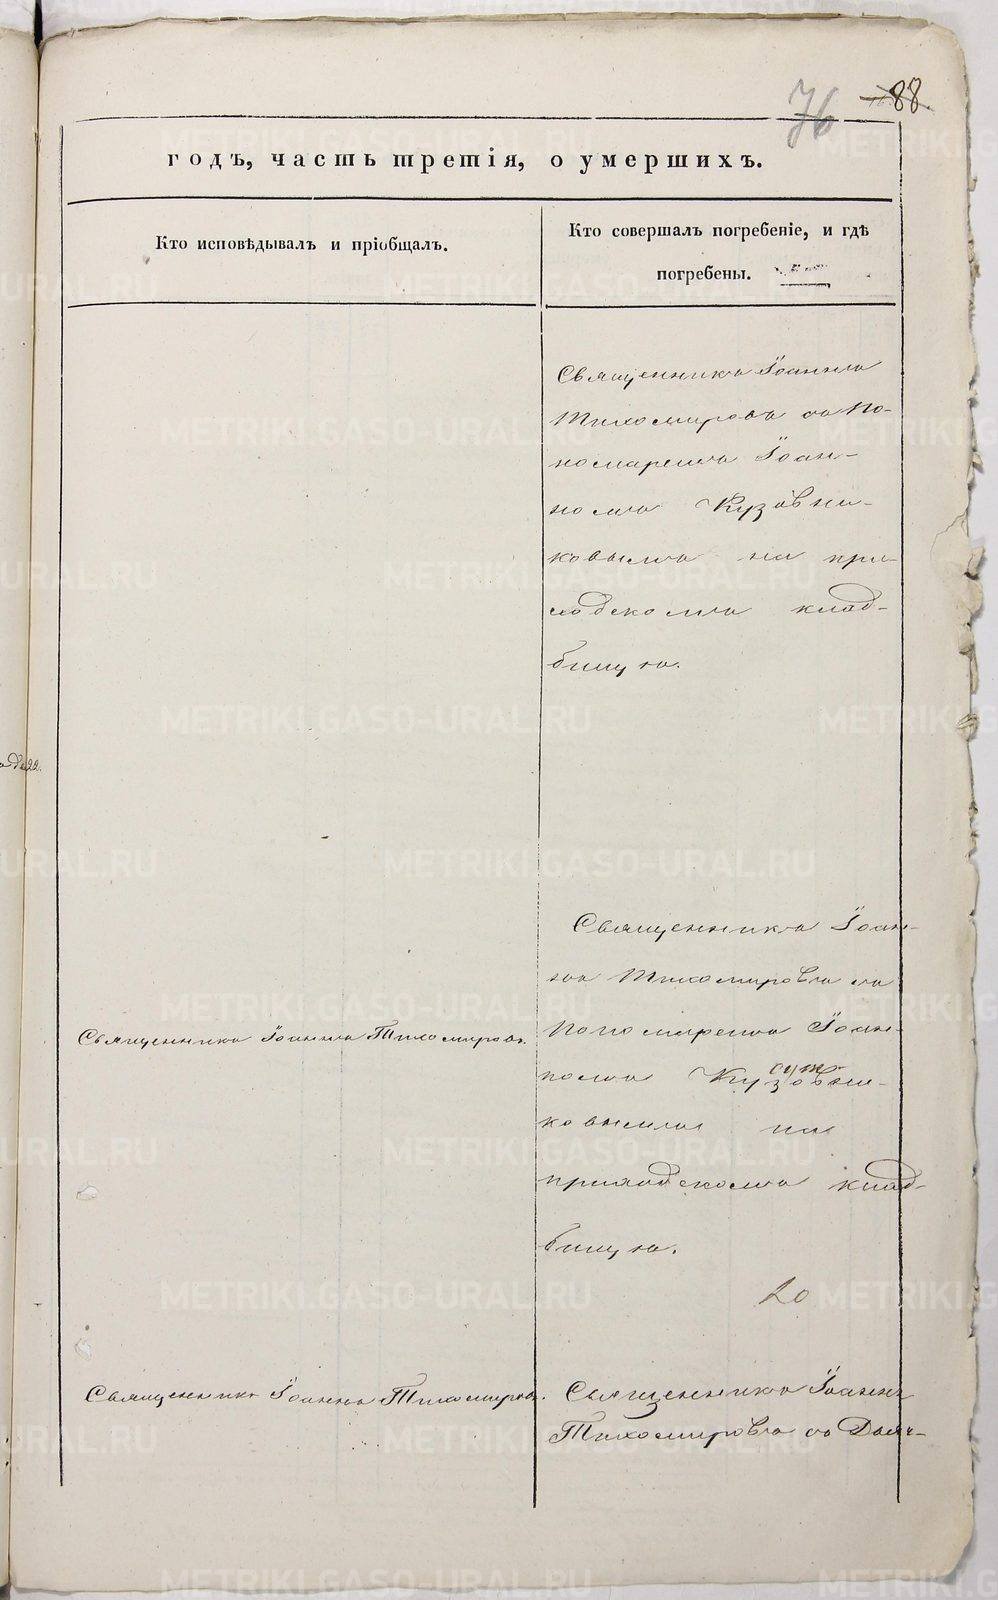 76 88
годъ, часть третія, о умершихъ.
Кто исповѣдывалъ и пріобщалъ.
Кто совершалъ погребеніе, и гдѣ
погребены.
Священникъ Іоаннъ
Тихомировъ съ По-
номаремъ Іоан-
номъ Кузовни-
ковымъ на при-
ходскомъ клад-
бищѣ.
Священникъ Іоаннъ Тихомировъ.
Священникъ Іоан-
нъ Тихомировъ съ
Пономаремъ Іоан-
номъ Кузовни-
ковымъ на
приходскомъ клад-
бищѣ.
20
Священникъ Іоаннъ Тихомировъ.
Священникъ Іоаннъ
Тихомировъ съ Дьяч-
METRIKI.GASO-URAL.RU